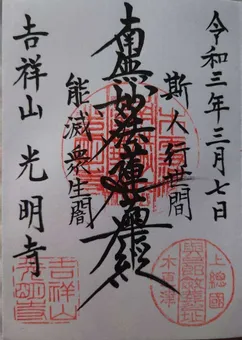 令和三年三月七日
斯人行世間
南無妙法蓮華經
能滅衆生闇
吉祥山 光明寺
上總國
木更津
吉祥山
光明寺